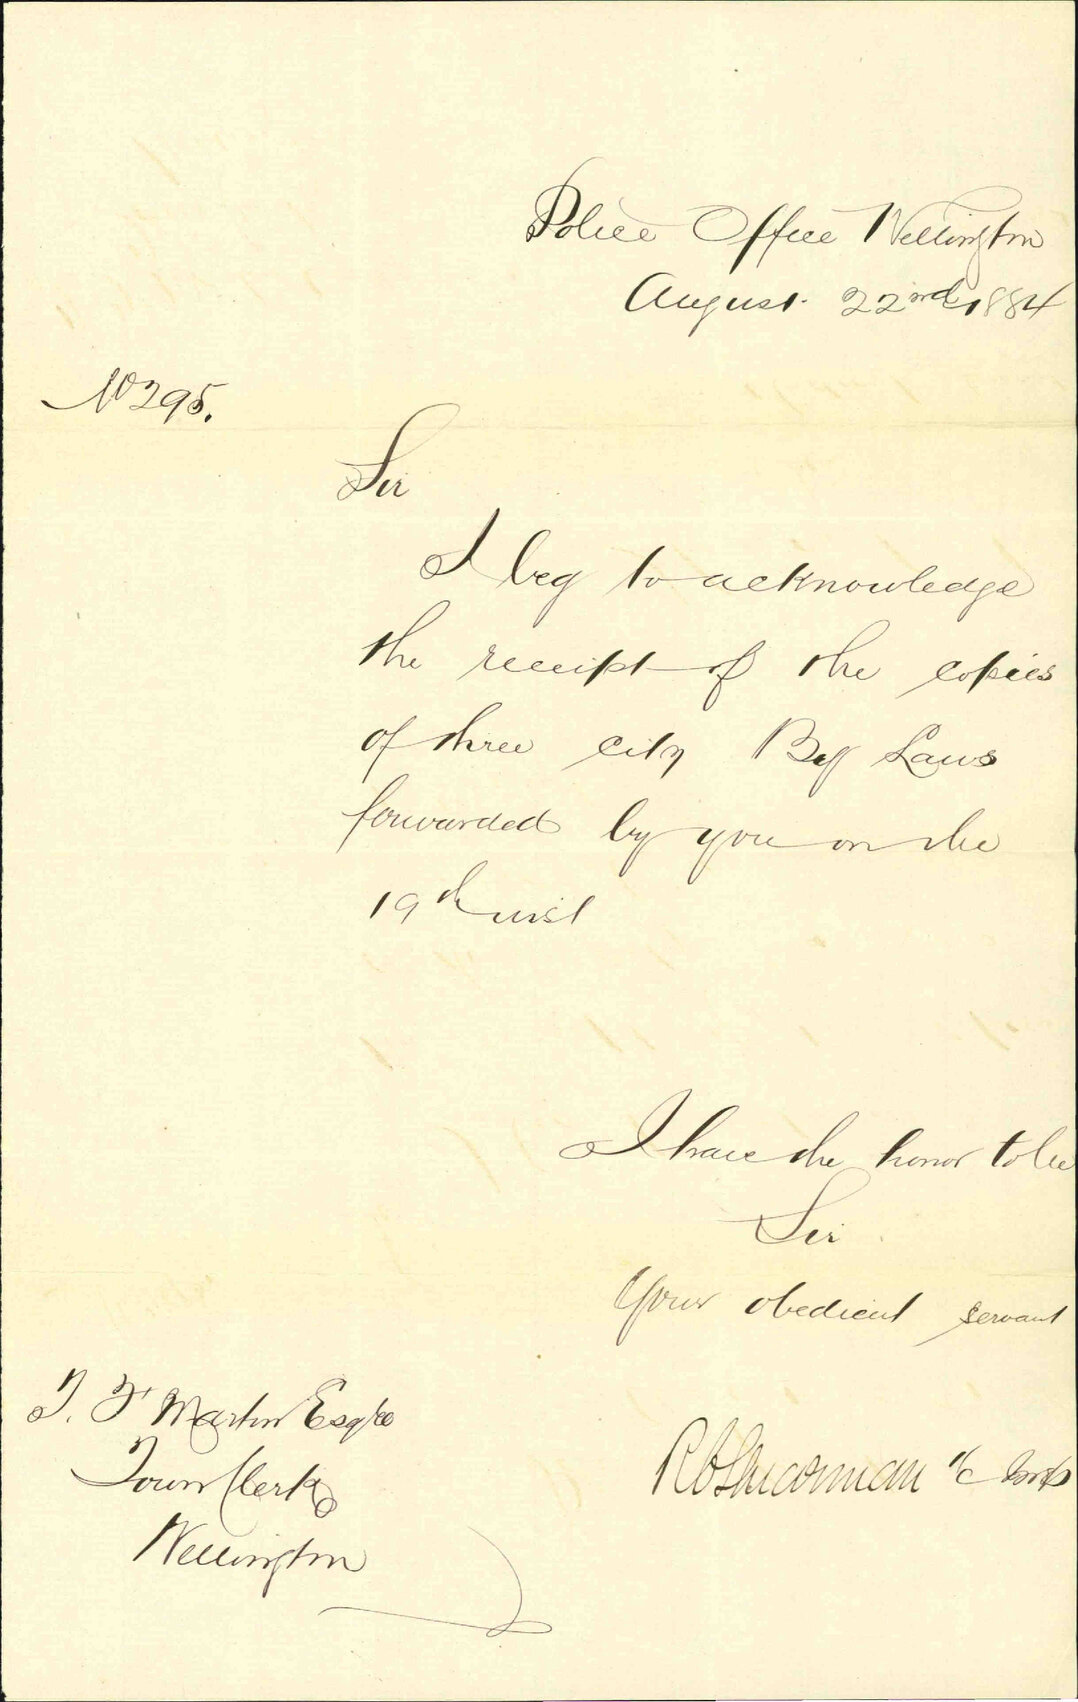 Police Office Wellington
August 22nd 1884
No 295.
Sir
I beg to acknowledge
the receipt of the copies
of three city By Laws
forwarded by you on the
19th inst
I have the honor to be
Sir
Your obedient servant
T. F. Martin Esqre
Town Clerk
Wellington